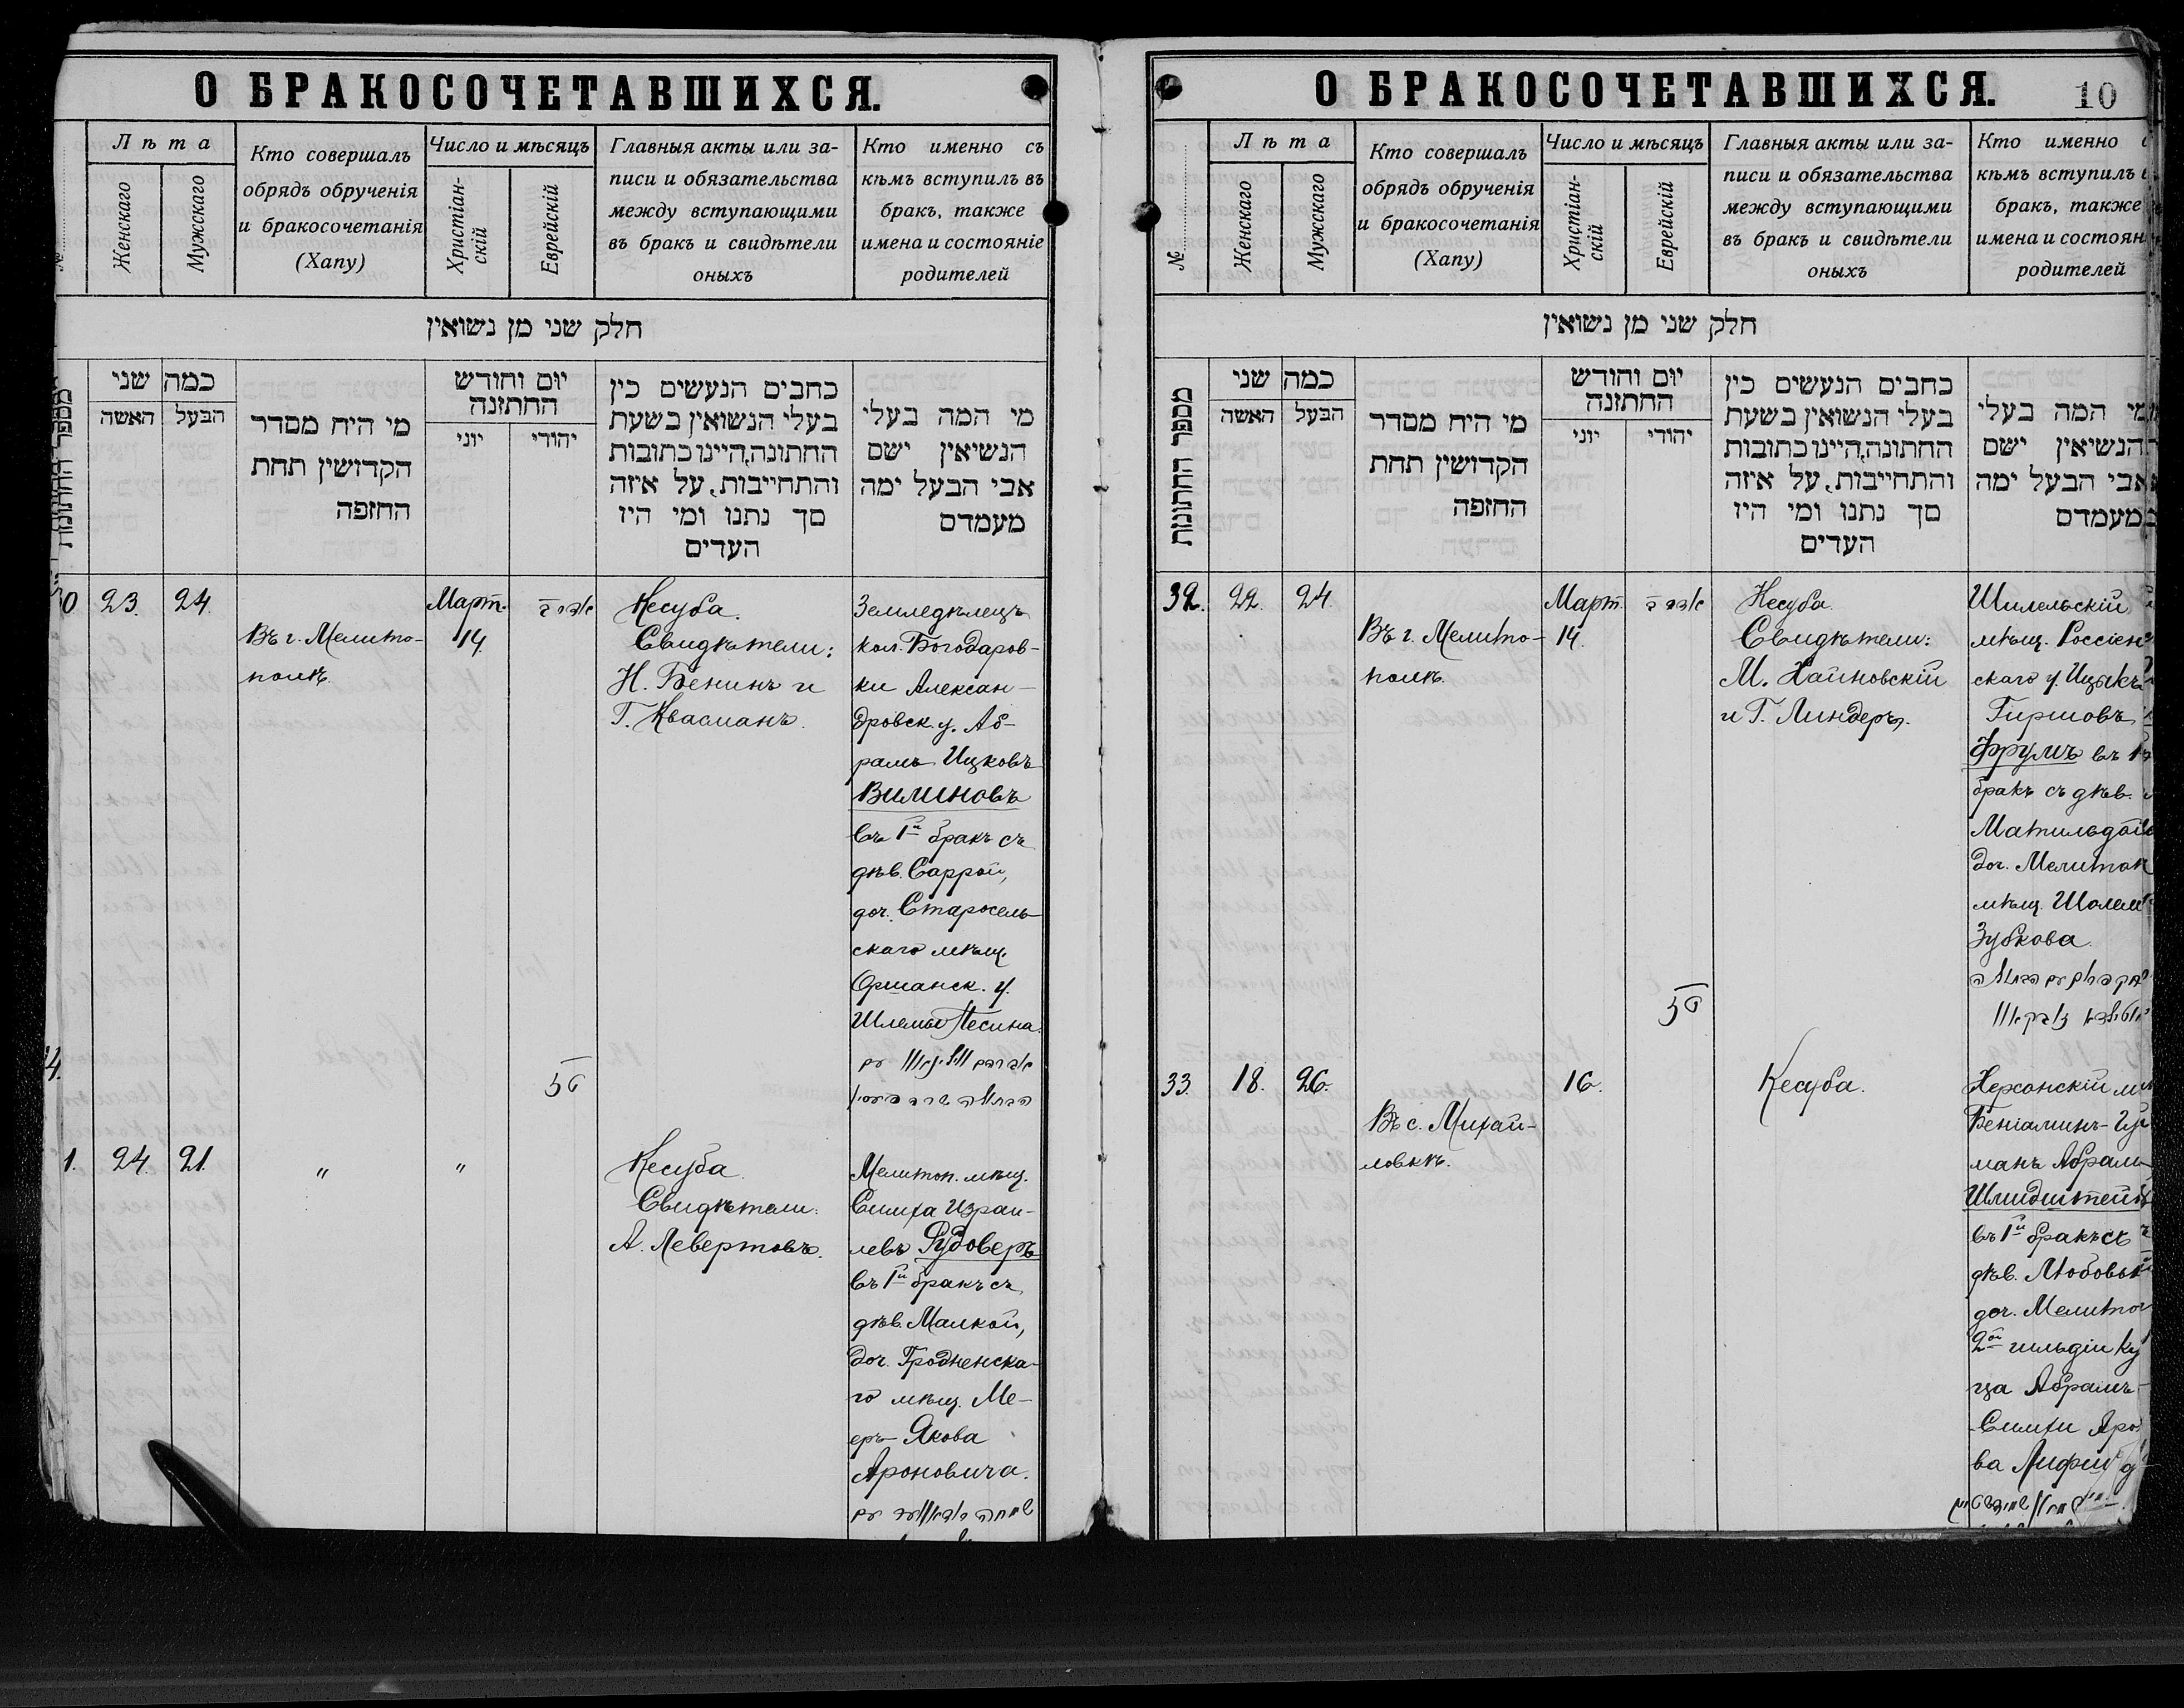 О БРАКОСОЧЕТАВШИХСЯ.
№
Лѣта
Женскаго
Мужскаго
Кто совершалъ
обрядъ обрученія
и бракосочетанія
(Хапу)
Число и мѣсяцъ
Христіан-
скій
Еврейскій
Главныя акты или за-
писи и обязательства
между вступающими
въ бракъ и свидѣтели
оныхъ
Кто именно съ
кѣмъ вступилъ въ
бракъ, также
имена и состояніе
родителей
חלק שני מן נשואין
מספר החתונות
כמה שני
האשה
הבעל
מי היח מסדר
הקדושין תחת
החזפה
יום וחודש
החתזנה
יוני
יהודי
כחבים הנעשים כין
בעלי הנשואין בשעת
החתונה,היינו כתובות
והתחייבות, על איזה
סך נתנו ומי היז
העדים
מי המה בעלי
הנשיאין ישם
אבי הבעל ימה
מעמדם
0
23.
24.
Въ г. Мелито-
полѣ.
Март.
14.
Кесуба.
Свидѣтели:
Н. Бенинъ и
Г. Квасманъ.
Земледѣлецъ
кол. Богодаров-
ки Алексан-
дровск. у. Аб-
рамъ Ицковъ
Вилиновъ
въ 1й бракъ съ
дѣв. Саррой,
доч. Старосель-
скаго мѣщ.
Оршанск. у.
Шлемы Песина.
4.
1.
24.
21.
"
"
Кесуба
Свидѣтели:
А. Левертовъ.
Мелитоп. мѣщ.
Симха Израи-
левъ Рудоверъ
въ 1й бракъ съ
дѣв. Малкой,
доч. Гродненска-
го мѣщ. Ме-
еръ-Якова
Ароновича.
О БРАКОСОЧЕТАВШИХСЯ.
10
№
Лѣта
Женскаго
Мужскаго
Кто совершалъ
обрядъ обрученія
и бракосочетанія
(Хапу)
Число и мѣсяцъ
Христіан-
скій
Еврейскій
Главныя акты или за-
писи и обязательства
между вступающими
въ бракъ и свидѣтели
оныхъ
Кто именно
кѣмъ вступилъ
бракъ, также
имена и состоян
родителей
חלק שני מן נשואין
מספר החתונות
כמה שני
האשה
הבעל
מי היח מסדר
הקדושין תחת
החזפה
יום וחודש
החתזנה
יוני
יהודי
כחבים הנעשים כין
בעלי הנשואין בשעת
החתונה,היינו כתובות
והתחייבות, על איזה
סך נתנו ומי היז
העדים
מי המה בעלי
הנשיאין ישם
אבי הבעל ימה
מעמדם
32.
22.
24.
Въ г. Мелито-
полѣ.
Март.
14.
Кесуба.
Свидѣтели:
М. Хайновскій
и Г. Линдеръ.
Шилельскій
мѣщ. Россіен
скаго у. Ицыкъ
Гиршовъ
Фрумъ въ 1й
бракъ съ дѣв.
Матильдой
доч. Мелитоп
мѣщ. Шолем
Зубкова.
33.
18.
26.
Въ с. Михай-
ловкѣ.
16.
Кесуба.
Херсонскій м
Беніаминъ-
манъ Абрам
Шмидштейн
въ 1й бракъ съ
дѣв. Любовью
доч. Мелитоп
2ой гильдіи ку
ца Абрамъ-
-Симхи Аро
ва